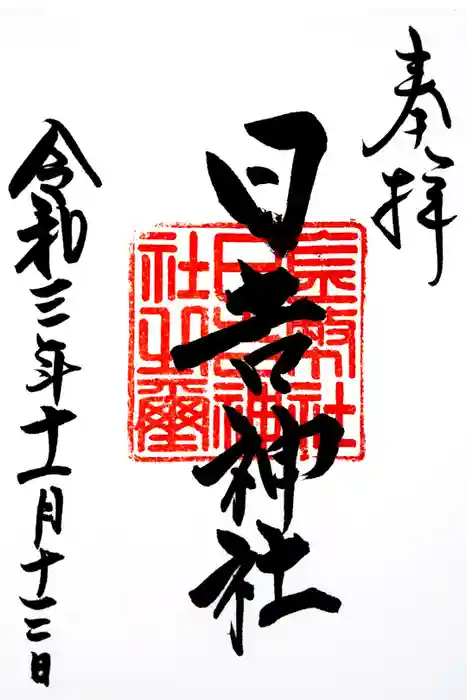 奉拝
日吉神社
幣社
日吉神
社之璽
令和三年十一月十二日